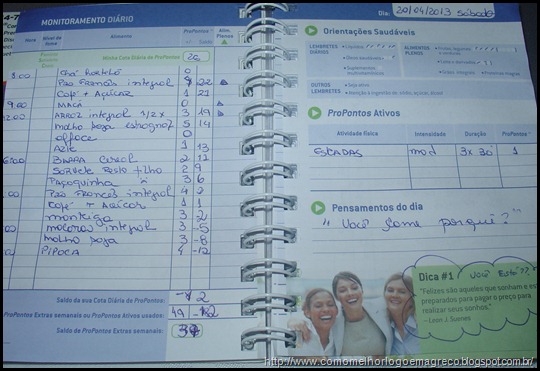 4-7
MONITORAMENTO DIÁRIO
Hora
Nível de fome
Alimento
ProPontos
+/-
Saldo
Alim. Plenos
Minha Cota Diária de ProPontos
26
8:00
Chá hortelã 0
Pão Francês integral 4 22
Café + Açúcar 1 21
9:00 Maçã 0
12:00 ARROZ integral 1/2 x 3 19
molho soja 5 14
alface 0
Azte 1 13
BARRA cereal 2 12
2 9
Paçoquinha 3 6
Pão Francês integral 4 2
Café + Açúcar 1 1
manteiga 3 -2
macarrão integral 3 -5
Molho soja 3 -8
PIPOCA 4 -12
Saldo da sua Cota Diária de ProPontos:
ProPontos Extras semanais ou ProPontos Ativos usados: 49
Saldo de ProPontos Extras semanais:
Dia: 20/04/2013 sábado
Orientações Saudáveis
LEMBRETES DIÁRIOS
• Líquidos
• Óleos saudáveis
• Suplementos multivitamínicos
ALIMENTOS PLENOS
• Frutas, legumes
• Leite e derivados
• Grãos integrais
• Proteínas magras
OUTROS LEMBRETES
• Seja ativo
• Atenção à ingestão de: sódio, açúcar, álcool
ProPontos Ativos
Atividade física
Intensidade
Duração
ProPontos
ESCADAS mod 3x 30' 1
Pensamentos do dia
"Você come porquê?"
Dica #1 Você Está??
"Felizes são aqueles que sonham e es
preparados para pagar o preço para
realizar seus sonhos."
– Leon J. Suenes
http://www.comomelhorlogoemagreco.blogspot.com.br/